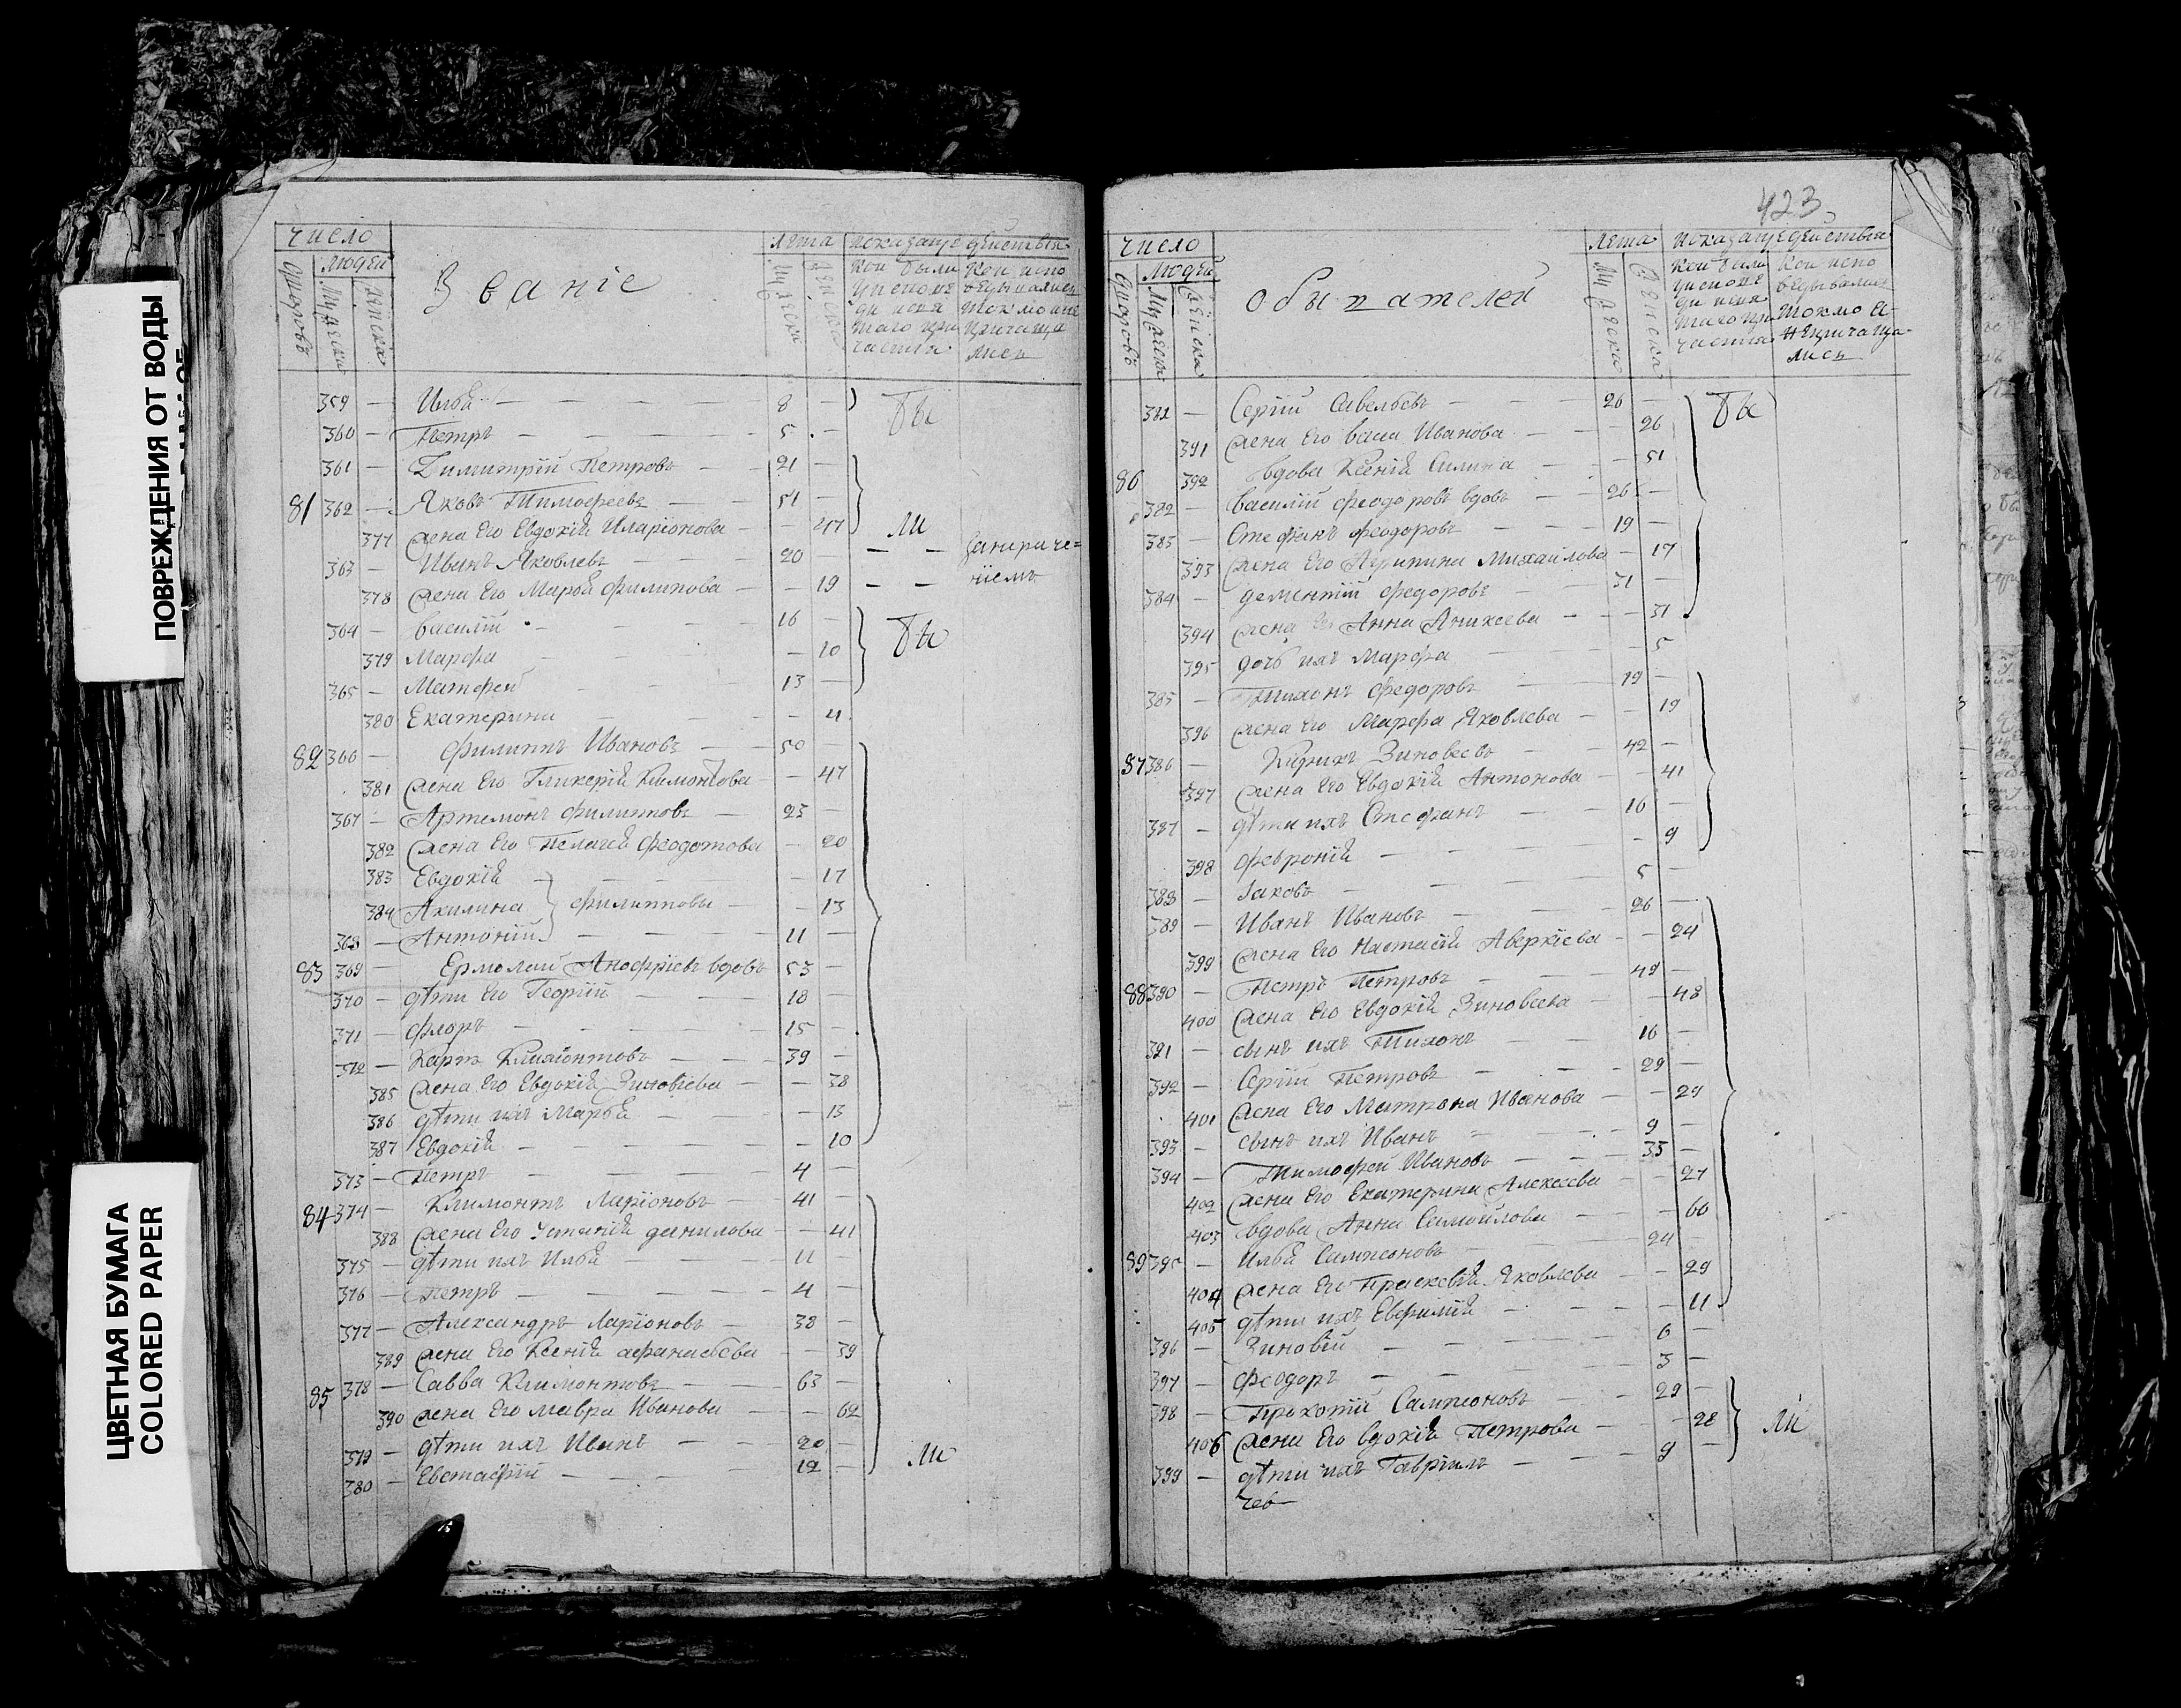 ПОВРЕЖДЕНИЯ ОТ ВОДЫ
ЦВЕТНАЯ БУМАГА
COLORED PAPER
число лѣта показаніе дѣйствія
людей
дворовъ мужеска женска
Званіе
мужеска женска
кои были у исповеди и святаго причастія
кои исповедывались токмо а не причащались
359 — Илья — 8 — бы
360 — Петръ — 5 —
361 — Димитрій Петровъ — 21 —
81 362 — Яковъ Тимофеевъ — 51 —
377 жена Его Евдокія Иларіонова — 47 ли
363 — Иванъ Яковлевъ — 20 —
378 жена Его Марья Филипова — 19
364 — Василій — 16 — бы
379 Марфа — 10
365 — Матфей — 13 —
380 Екатерина — 4
82 366 — Филиппъ Ивановъ — 50 —
381 жена Его Гликерія Климонтова — 47
367 — Артемонъ Филипповъ — 23 —
382 жена Его Пелагея Феодотова — 20
383 Евдокія — 17
384 Акилина Филипповы — 13
368 — Антоній — 11 —
83 369 — Ермолай Анофріевъ вдовъ 53 —
370 — дѣти Его Георгій — 18 —
371 — Флоръ — 15 —
372 — Карпъ Климонтовъ — 39 —
385 жена Его Евдокія Зиновіева — 38
386 дѣти ихъ Марья — 13
387 Евдокія — 10
373 — Петръ — 4 —
84 374 — Климонтъ Ларіоновъ — 41 —
388 жена Его Устинія Данилова — 41
375 — дѣти ихъ Илья — 11 —
376 — Петръ — 4 —
377 — Александръ Ларіоновъ — 38 —
389 жена Его Ксенія Афанасьева — 39
85 378 — Савва Климонтовъ — 63 —
390 жена Его Мавра Иванова — 62
379 — дѣти ихъ Иванъ — 20 — ли
380 — Евстафій — 12 —
423
число лѣта показаніе дѣйствія
людей
дворовъ мужеска женска
обытателей
мужеска женска
кои были у исповеди и святаго причастія
кои исповедывались токмо а не причащались
381 — Сергій Савельевъ — 26 — бы
391 жена Его Васса Иванова — 26
86 392 вдова Ксенія — 51
382 — Василій Феодоровъ вдовъ — 26 —
383 — Стефанъ Феодоровъ — 19 —
393 жена Его Агрипина Михайлова — 17
384 — Дементій Федоровъ — 31 —
394 жена Его Анна Аникеева — 31
395 дочь ихъ Марфа — 5
385 — Тихонъ Федоровъ — 19 —
396 жена Его Марфа Яковлева — 19
87 386 — Зиновеевъ — 42 —
397 жена Его Евдокія Антонова — 41
387 — дѣти ихъ Стефанъ — 16 —
398 Февронія — 9
388 — Іаковъ — 5 —
389 — Иванъ Ивановъ — 26 —
399 жена Его Настасія Аверкіева — 24
88 390 — Петръ Петровъ — 49 —
400 жена Его Евдокія Зиновеева — 48
391 — сынъ ихъ Тихонъ — 16 —
392 — Сергій Петровъ — 29 —
401 жена Его Матрона Иванова — 29
393 — сынъ ихъ Иванъ — 9 —
394 — Тимофей Ивановъ — 33 —
402 жена Его Екатерина Алексеева — 27
403 вдова Анна Самойлова — 60
89 395 — Илья Сампсоновъ — 24 —
404 жена Его Прасковія Яковлева — 29
405 дѣти ихъ Евфимія — 11
396 — Зиновій — 6 —
397 — Феодоръ — 3 —
398 — Прокопій Сампсоновъ — 29 —
406 жена Его Евдокія Петрова — 28 ли
399 — дѣти ихъ Гавріилъ — 9 —